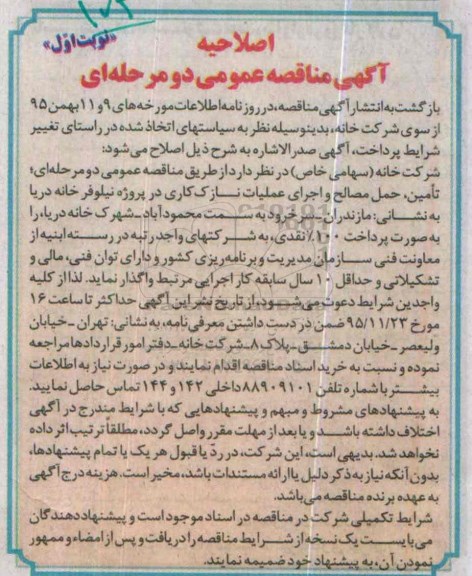 «نوبت اوّل»
اصلاحیه
آگهی مناقصه عمومی دو مرحله‌ای
بازگشت به انتشار آگهی مناقصه، در روزنامه اطلاعات مورخه‌های ۹ و ۱۱ بهمن ۹۵
از سوی شرکت خانه، بدینوسیله نظر به سیاستهای اتخاذ شده در راستای تغییر
شرایط پرداخت، آگهی صدرالاشاره به شرح ذیل اصلاح می‌شود:
شرکت خانه (سهامی خاص) در نظر دارد از طریق مناقصه عمومی دو مرحله‌ای؛
تأمین، حمل مصالح و اجرای عملیات نازک‌کاری در پروژه نیلوفر خانه دریا
به نشانی: مازندران ـ سرخرود به سمت محمودآباد ـ شهرک خانه دریا، را
به صورت پرداخت ۱۰۰٪ نقدی، به شرکتهای واجد رتبه در رسته ابنیه از
معاونت فنی سازمان مدیریت و برنامه‌ریزی کشور و دارای توان فنی، مالی و
تشکیلاتی و حداقل ۱۰ سال سابقه کار اجرایی مرتبط واگذار نماید. لذا از کلیه
واجدین شرایط دعوت می‌شود، از تاریخ نشر این آگهی حداکثر تا ساعت ۱۶
مورخ ۹۵/۱۱/۲۳ ضمن در دست داشتن معرفی‌نامه، به نشانی: تهران ـ خیابان
ولیعصر ـ خیابان دمشق ـ پلاک ۸ ـ شرکت خانه ـ دفتر امور قراردادها مراجعه
نموده و نسبت به خرید اسناد مناقصه اقدام نمایند و در صورت نیاز به اطلاعات
بیشتر با شماره تلفن ۸۸۹۰۹۱۰۱ داخلی ۱۴۲ و ۱۴۴ تماس حاصل نمایید.
به پیشنهادهای مشروط و مبهم و پیشنهادهایی که با شرایط مندرج در آگهی
اختلاف داشته باشد و یا بعد از مهلت مقرر واصل گردد، مطلقاً ترتیب اثر داده
نخواهد شد. بدیهی است، این شرکت، در ردّ یا قبول هر یک یا تمام پیشنهادها،
بدون آنکه نیاز به ذکر دلیل یا ارائه مستندات باشد، مخیر است. هزینه درج آگهی
به عهده برنده مناقصه می‌باشد.
شرایط تکمیلی شرکت در مناقصه در اسناد موجود است و پیشنهاددهندگان
می‌بایست یک نسخه از شرایط مناقصه را دریافت و پس از امضاء و ممهور
نمودن آن، به پیشنهاد خود ضمیمه نمایند.